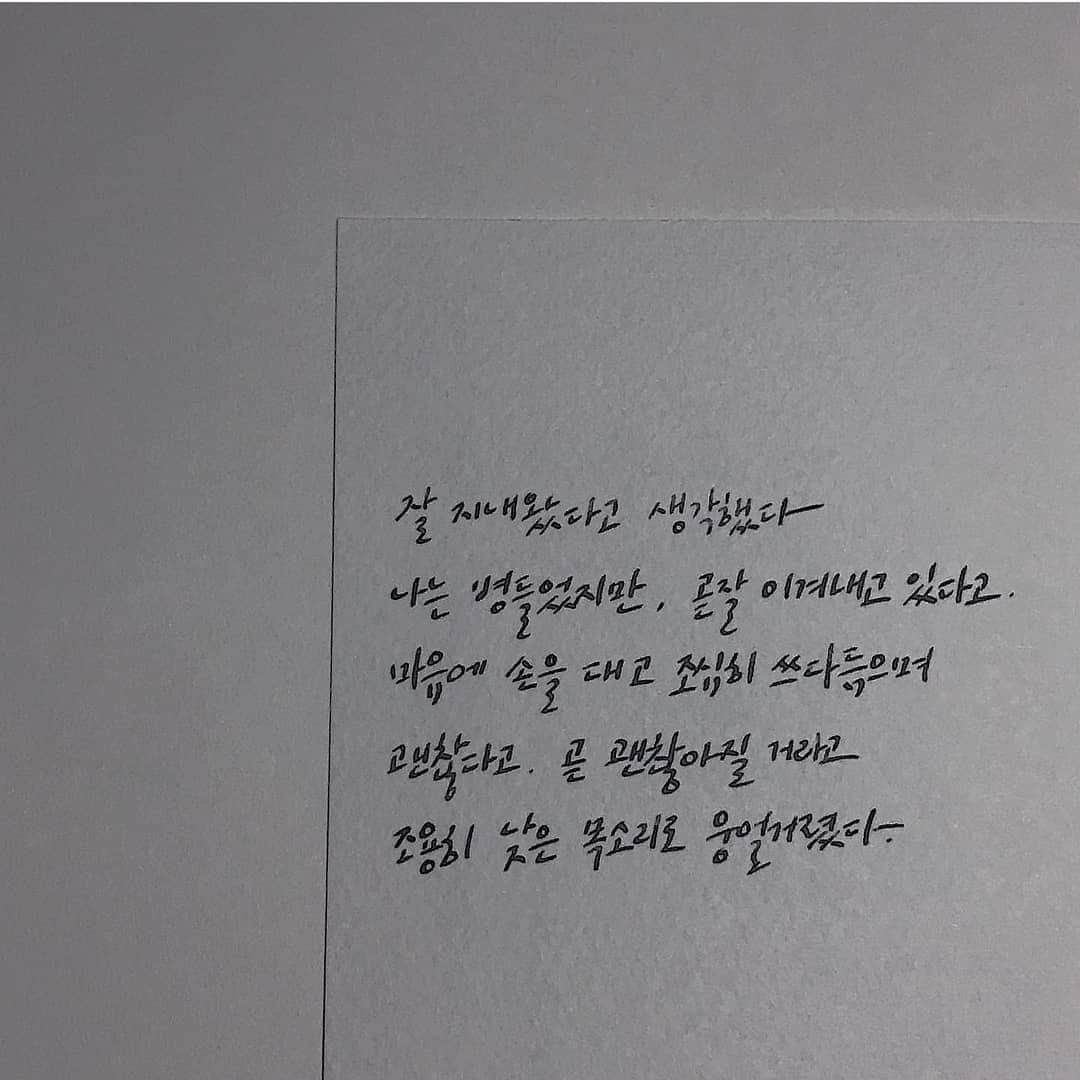 잘 지내왔다고 생각했다
나는 병들었지만, 곧잘 이겨내고 있다고.
마음에 손을 대고 조심히 쓰다듬으며
괜찮다고. 곧 괜찮아질 거라고
조용히 낮은 목소리로 웅얼거렸다.